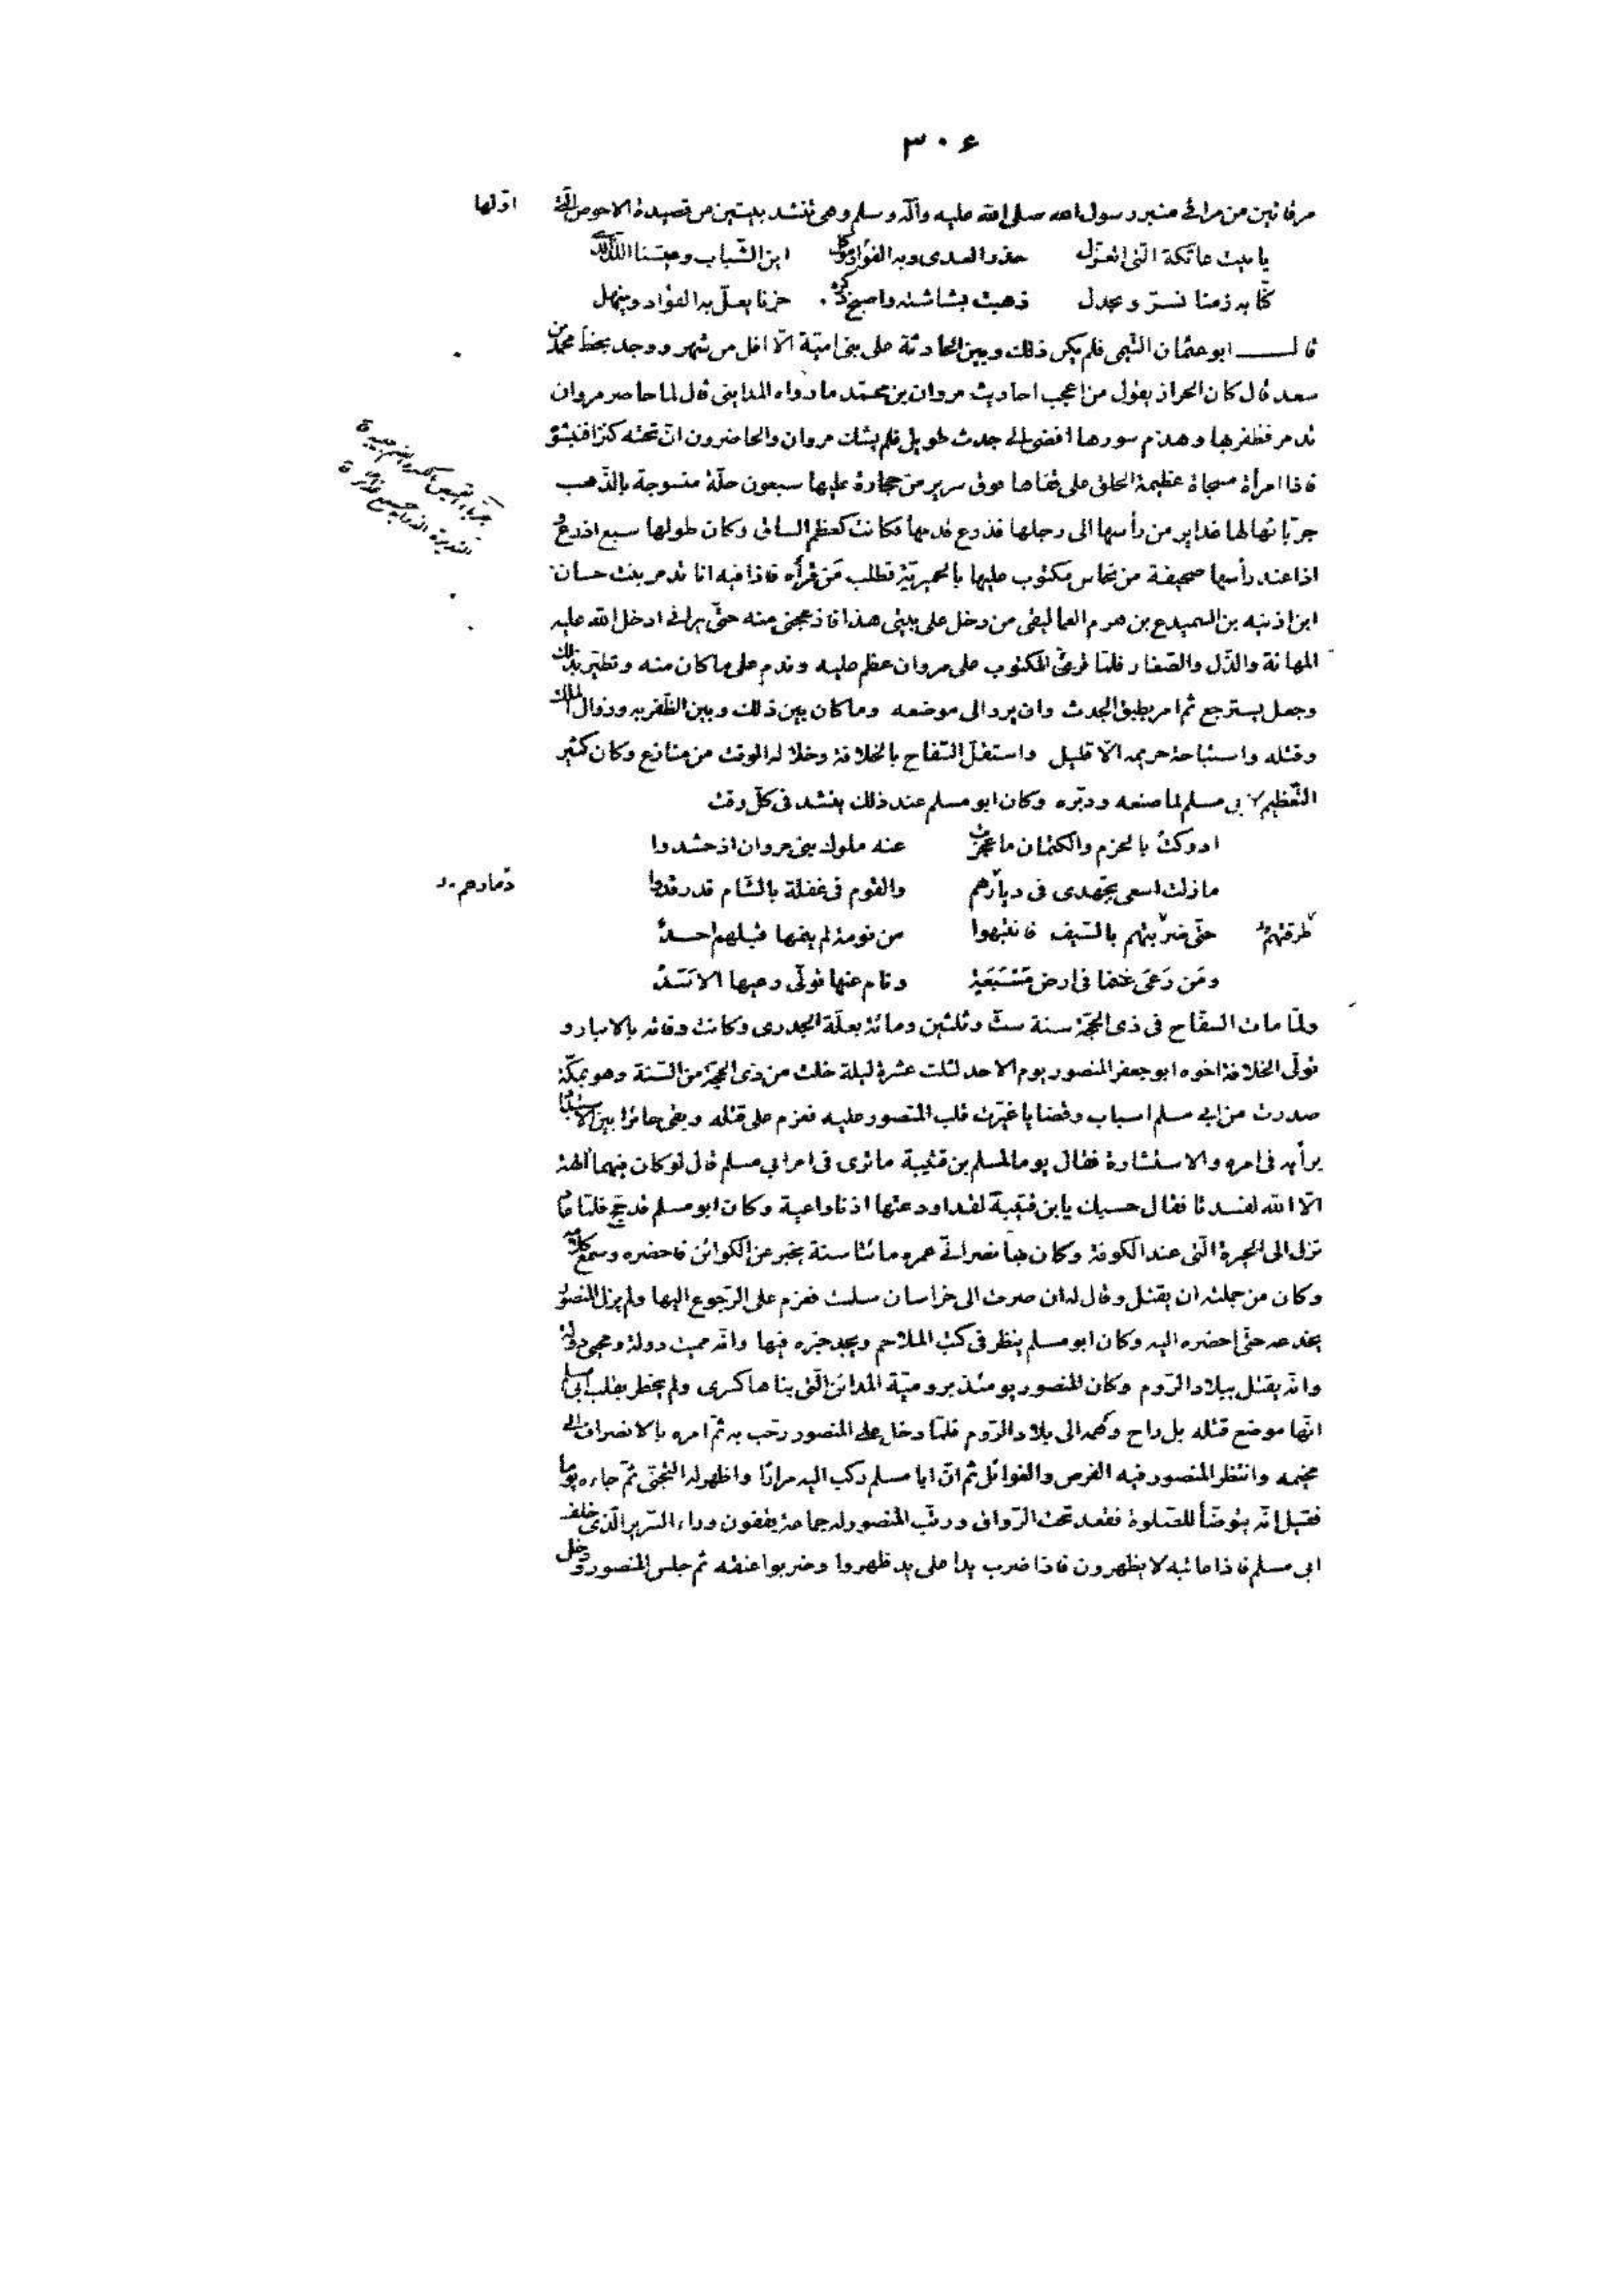 ٣٠۶
مرقاتين من مراقى منبر رسول الله صلى الله عليه وآله وسلم وهى تنشد بيتين من قصيدة الاحوص التى اولها
يا بيت عاتكة التى اتعزل حذر العدى وبه الفؤاد موكل اين الشباب وعيشنا اللذ الذى
كنا به زمنا نسر و نجدل ذهبت بشاشته واصبح ذكره حزنا يعل به الفؤاد وينهل
قال ابو عثمان التيمى فلم يكن ذلك وبين الحادثة على بنى امية الا اقل من شهر ووجد بخط محمد بن
سعد قال كان الخراز يقول من اعجب احاديث مروان بن محمد ما رواه المداينى قال لما حاصر مروان
تدمر فظفر بها وهدم سورها افضى الى جدث طويل فلم يشك مروان والحاضرون ان تحته كنزا فنبشو
فاذا امرأة مسجاة عظيمة الخلق على قفاها فوق سرير من حجارة عليها سبعون حلة منسوجة بالذهب
جربّانها لها غداير من رأسها الى رجلها فذرع قدمها فكانت كعظم الساق وكان طولها سبع اذرع و
اذا عند رأسها صحيفة من نحاس مكتوب عليها بالحميرية فطلب من قرأه فاذا فيه انا تدمر بنت حسان
ابن اذينه بن السميدع بن هرم العماليقى من دخل على بيتى هذا فازعجنى منه حتى يرانى ادخل الله عليه
المهانة والذل والصغار فلما قرئ المكتوب على مروان عظم عليه وندم على ما كان منه وتطير بذلك
وجعل يسترجع ثم امر بطبق الجدث وان يرد الى موضعه وما كان بين ذلك وبين الظفر به وزوال الملك
وقتله واستباحة حريمه الا قليل واستقل السفاح بالخلافة وخلا له الوقت من منازع وكان كثير
التعظيم لابى مسلم لما صنعه ودبره وكان ابو مسلم عند ذلك ينشد فى كل وقت
ادركت بالحزم والكتمان ما عجزت عنه ملوك بنى مروان اذ حشدوا
ما زلت اسعى بجهدى فى ديارهم والقوم فى غفلة بالشام قد رقدوا دمارهم
طرقتهم حتى ضربتهم بالسيف فانتبهوا من نومة لم ينمها قبلهم احد
ومن رعى غنما فى ارض مسبعة ونام عنها تولى رعيها الاسد
ولما مات السفاح فى ذى الحجة سنة ست وثلثين ومائة بعلة الجدرى وكانت وفاته بالانبار و
تولى الخلافة اخوه ابو جعفر المنصور يوم الاحد لثلث عشرة ليلة خلت من ذى الحجة من السنة وهو بمكة
صدرت من ابى مسلم اسباب وقضايا غيرت قلب المنصور عليه فعزم على قتله وبقى حائرا بين الاستبداد
برأيه فى امره والاستشارة فقال يوما لمسلم بن قتيبة ما ترى فى امر ابى مسلم قال لو كان فيهما الهة
الا الله لفسدتا فقال حسبك يابن قتيبة لقد اودعتها اذنا واعية وكان ابو مسلم قد حج فلما قام
نزل الى الحيرة التى عند الكوفة وكان بها نصرانى عمره مائتا سنة يخبر عن الكوائن فاحضره وسمع كلامه
وكان من جملته ان يقتل وقال له ان صرت الى خراسان سلمت فعزم على الرجوع اليها ولم يزل المنصور
يخدعه حتى احضره اليه وكان ابو مسلم ينظر فى كتب الملاحم ويجد خبره فيها وانه مميت دولة ومحيى دولة
وانه يقتل ببلاد الروم وكان المنصور يومئذ برومية المدائن التى بناها كسرى ولم يخطر بقلب ابى مسلم
انها موضع قتله بل راح وهمه الى بلاد الروم فلما دخل على المنصور رحب به ثم امره بالانصراف الى
مخيمه وانتظر المنصور فيه الفرص والغوائل ثم ان ابا مسلم ركب اليه مرارًا واظهر له التجنى ثم جاءه يوما
فقيل انه يتوضأ للصلوة فقعد تحت الرواق ورتب المنصور له جماعة يقفون وراء السرير الذى خلف
ابى مسلم فاذا عاتبه لا يظهرون فاذا ضرب يدا على يد ظهروا وضربوا عنقه ثم جلس المنصور ودخل